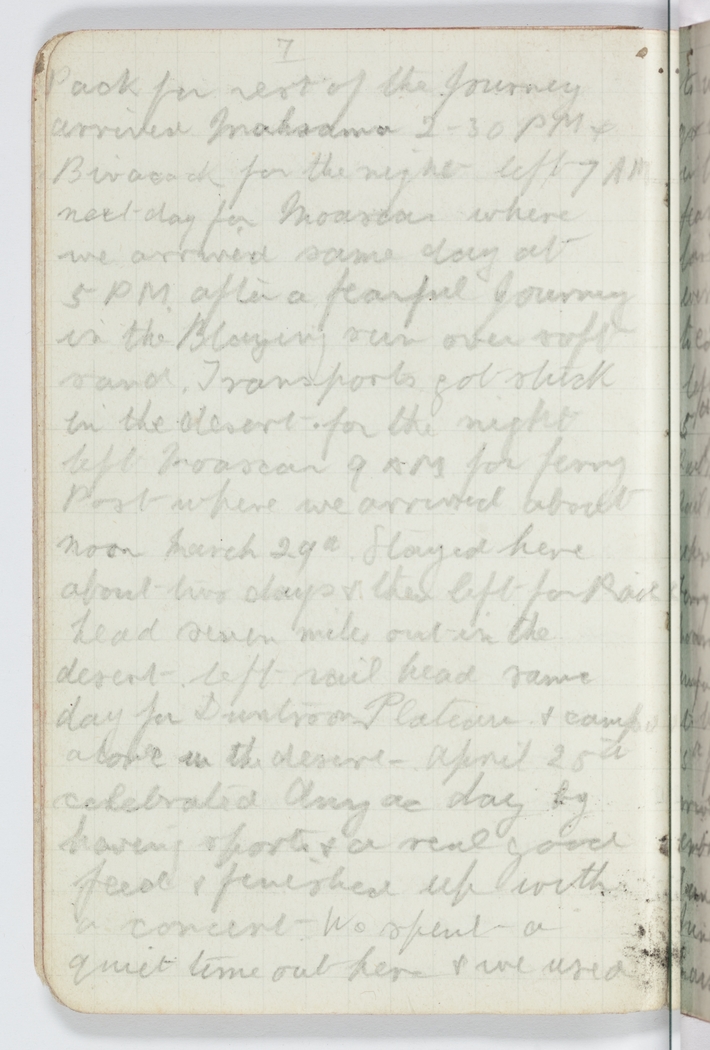 7
Pack for rest of the Journey
arrived Mahsama 2-30 PM &
Bivacack for the night left 7 AM
next day for Moascar where
we arrived same day at
5 PM after a fearful Journey
in the Blazing sun over soft
sand. Transports got stuck
in the desert for the night
left Moascar 9 AM for ferry
Post where we arrived about
noon March 29th Stayed here
about two days & then left for Rail
head seven miles out in the
desert left rail head same
day for Duntroon Plateau & camped
alone in the desert April 25th
celebrated Anzac day by
having sports & a real good
feed & finished up with
a concert We spent a
quiet time out here & we used